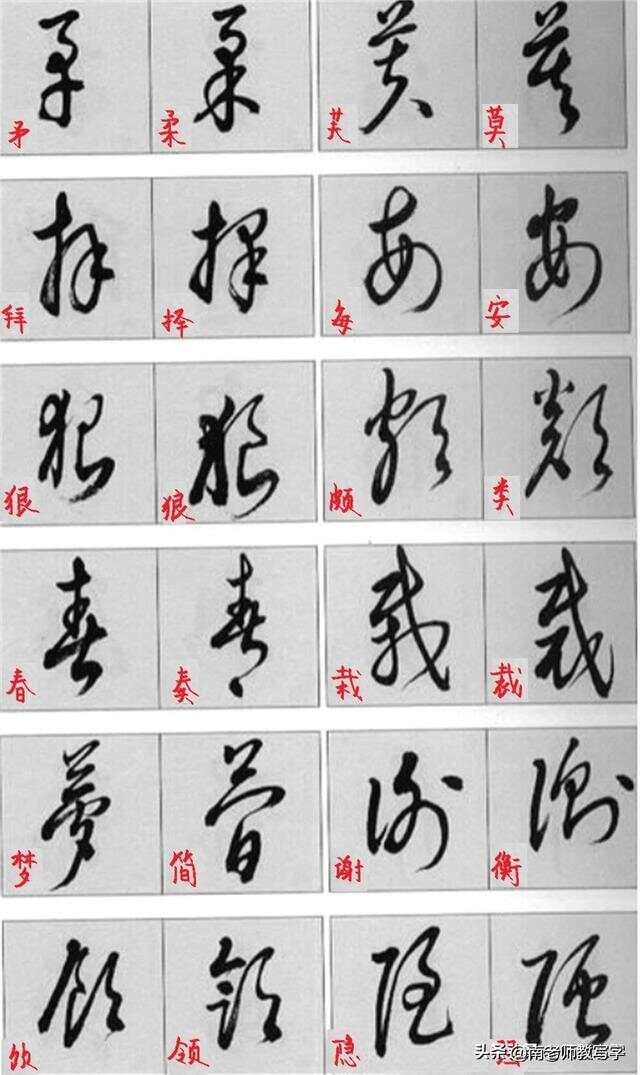 矛 柔 芙 莫
拜 择 每 安
狠 狼 颇 类
春 奏 栽 裁
梦 简 谢 衡
领 隐
头条@南老师教写字